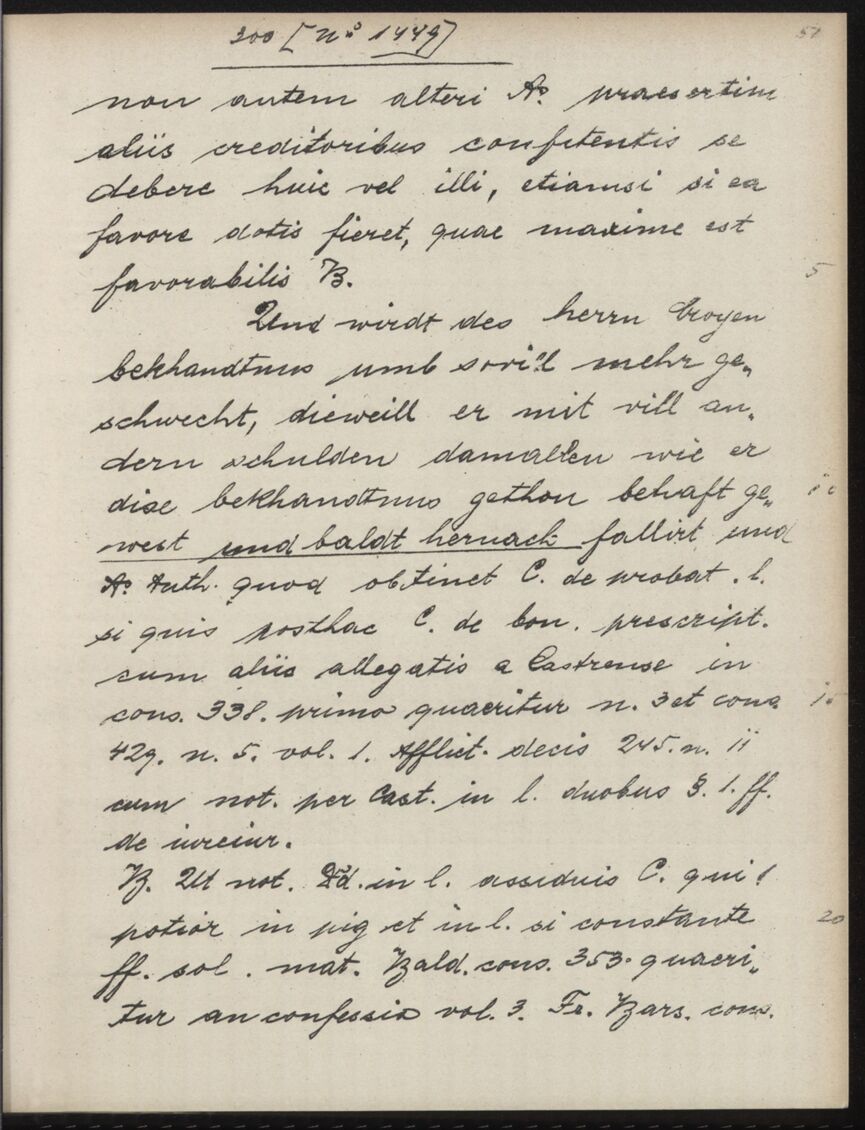 300 [No 1449]
51
non autem alteri A. praesertim
aliis creditoribus confitentis se
debere huic vel illi, etiamsi si ea
favore dotis fieret, quae maxime est
favorabilis B.
5
Und wirdt des herrn Croyen
bekhandtnus umb sovill mehr ge„
schwecht, dieweill er mit vill an„
dern schulden damallen wie er
dise bekhandtnus gethon behaft ge„
10
west und baldt hernach fallirt und
A. Auth. quod obtinet C. de probat. l.
si quis posthac C. de bon. prescript.
cum aliis allegatis a Castrense in
cons. 338. primo quaeritur n. 3 et cons.
15
429. n. 5. vol. 1. Afflict. decis 245. n. 11
cum not. per Cast. in l. duobus § 1. ff.
de iureiur.
B. Ut not. Dd. in l. assiduis C. qui
potior in pig et in l. si constante
20
ff. sol. mat. Bald. cons. 353. quaeri„
tur an confessio vol. 3. Fr. Bars. cons.